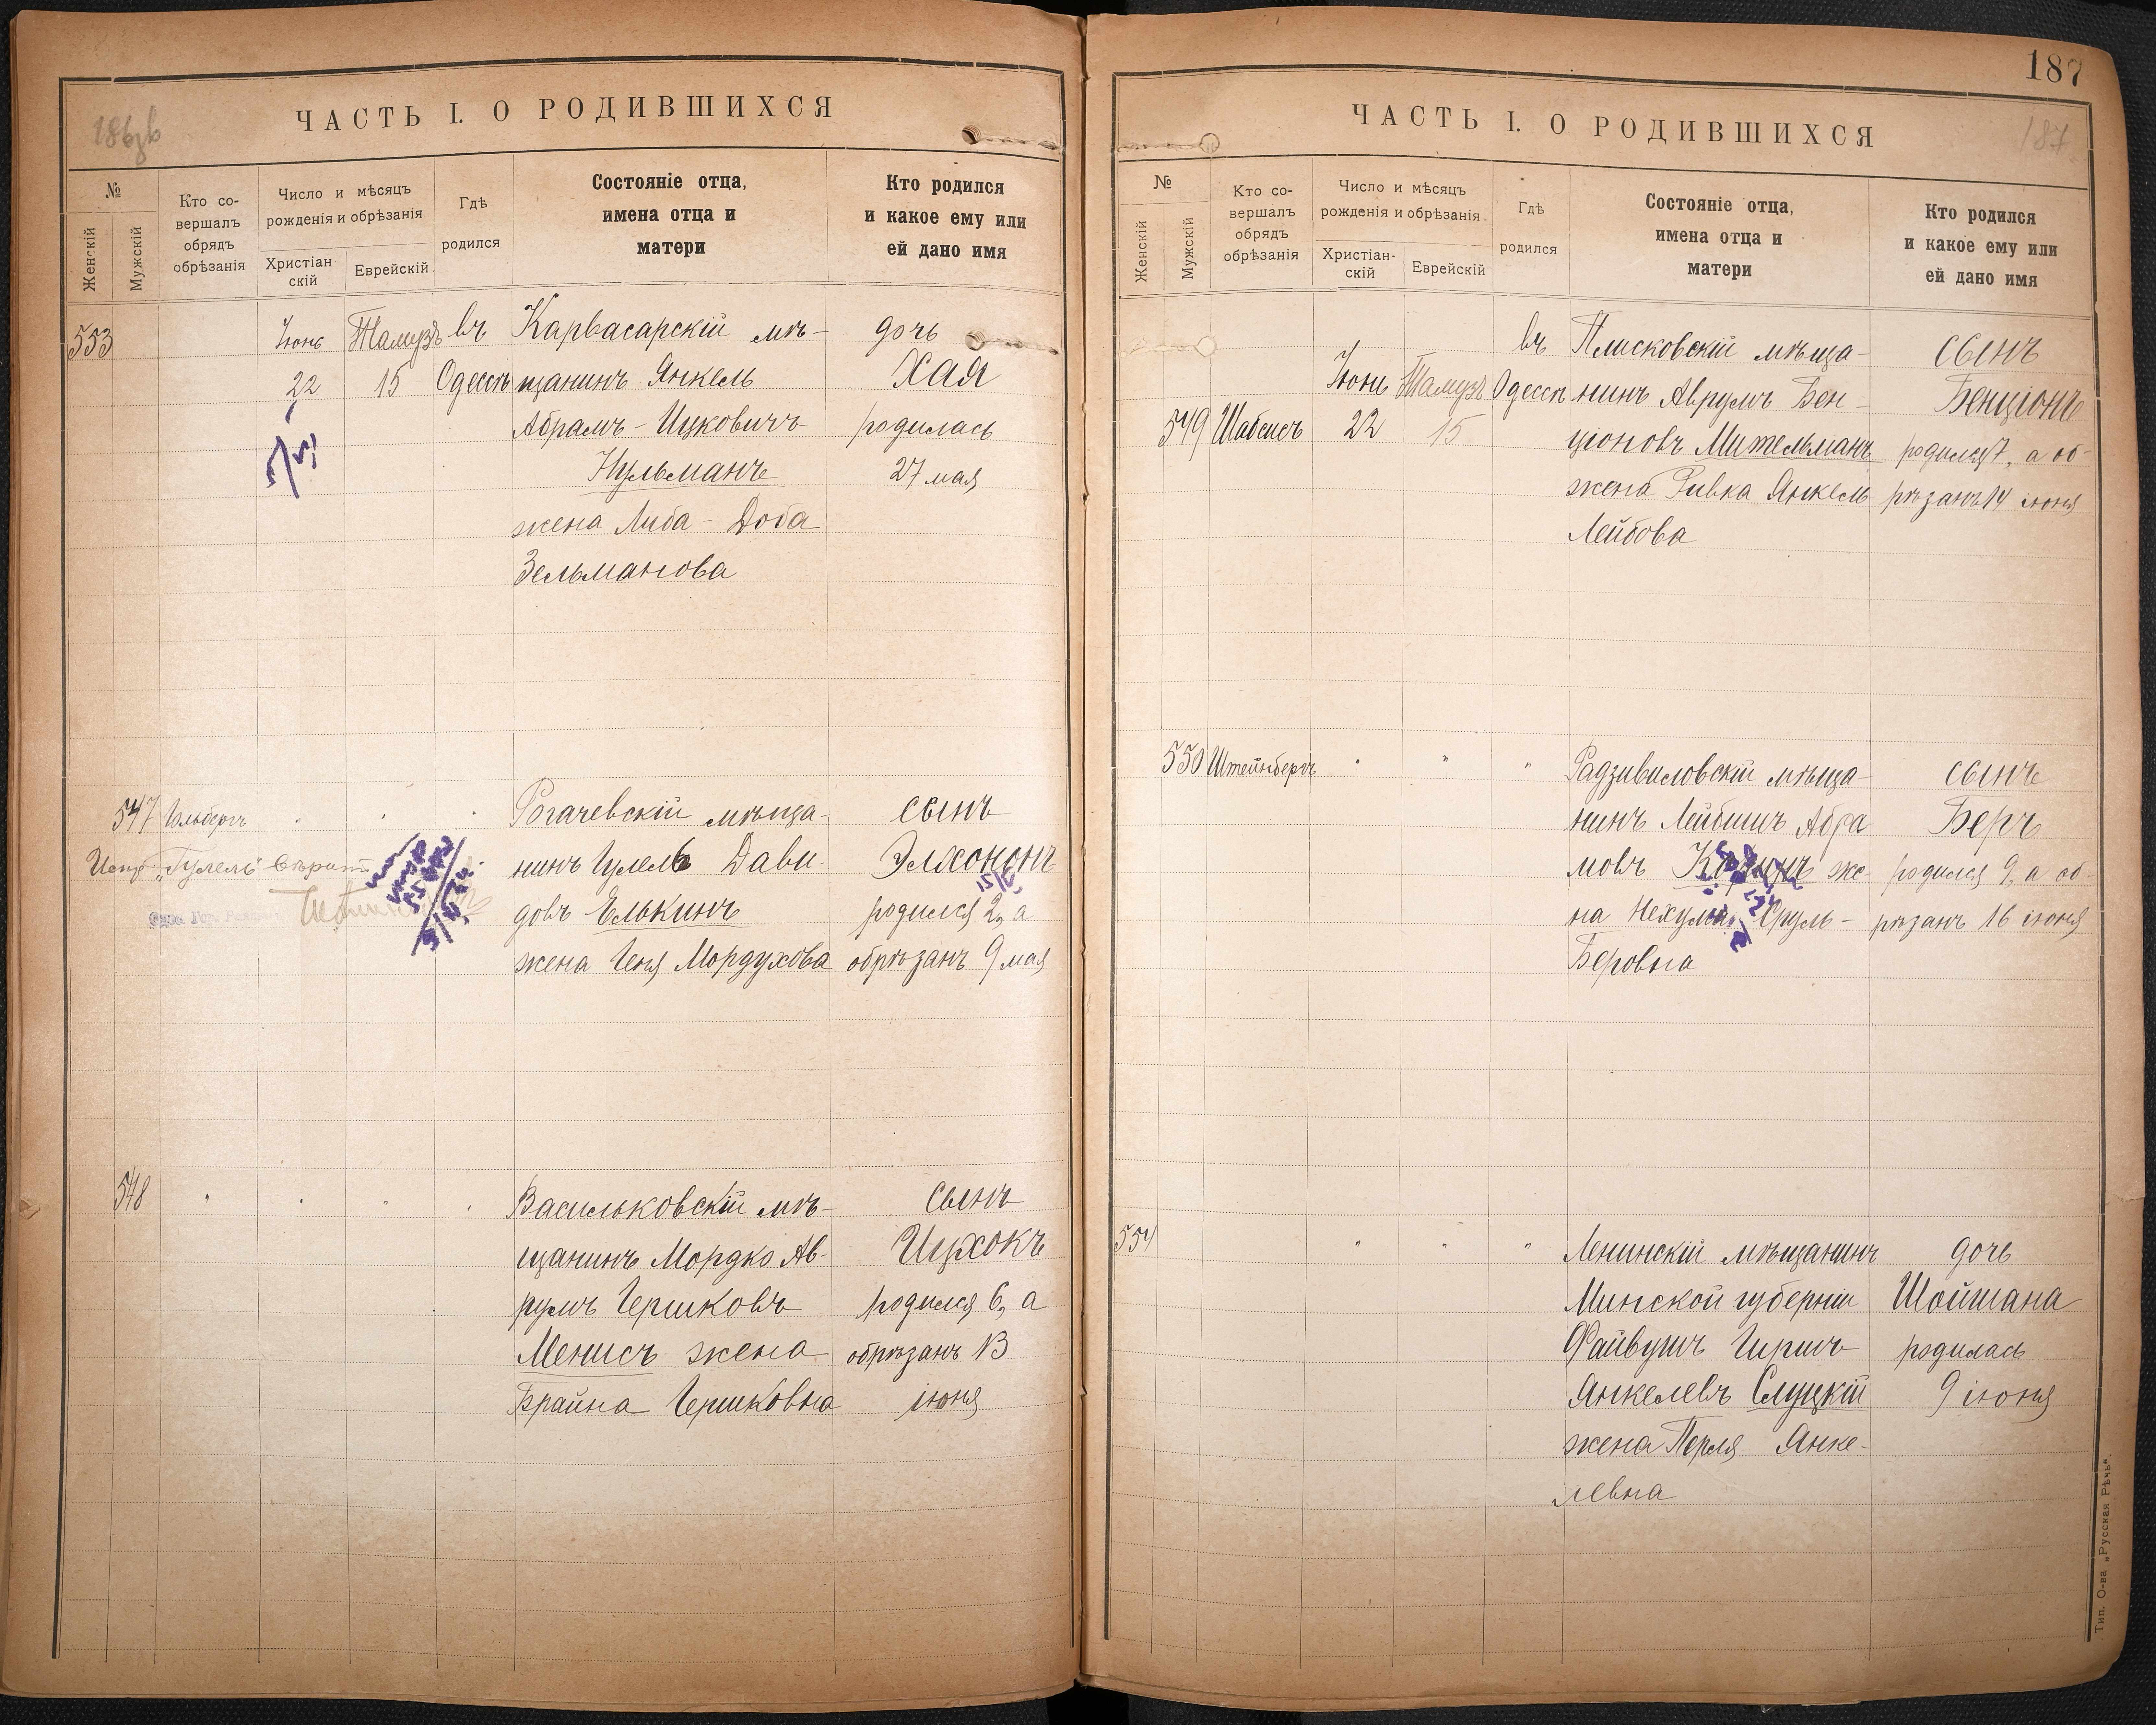 ЧАСТЬ I. О РОДИВШИХСЯ
№
Женскій
Мужскій
Кто со-
вершалъ
обрядъ
обрѣзанія
Число и мѣсяцъ
рожденія и обрѣзанія
Христіан-
скій
Еврейскій
Гдѣ
родился
Состояніе отца,
имена отца и
матери
Кто родился
и какое ему или
ей дано имя
553
Іюнь
22
Тамузъ
15
въ
Одессѣ
Карвасарскій мѣ-
щанинъ Янкель
Абрамъ-Ицковичъ
Нульманъ
жена Либа-Доба
Зельманова
дочь
Хая
родилась
27 мая
547
Гольбергъ
Рогачевскій мѣща-
нинъ Гилель Дави-
довъ Елькинъ
жена Геня Мордухова
сынъ
Элхононъ
родился 2, а
обрѣзанъ 9 мая
548
Васильковскій мѣ-
щанинъ Мордко Ав-
румъ Гершковъ
Менисъ жена
Брайна Гершковна
сынъ
Ицхокъ
родился 6, а
обрѣзанъ 13
іюня
187
ЧАСТЬ I. О РОДИВШИХСЯ
187
№
Женскій
Мужскій
Кто со-
вершалъ
обрядъ
обрѣзанія
Число и мѣсяцъ
рожденія и обрѣзанія
Христіан-
скій
Еврейскій
Гдѣ
родился
Состояніе отца,
имена отца и
матери
Кто родился
и какое ему или
ей дано имя
549
Шабсисъ
Іюнь
22
Тамузъ
15
въ
Одессѣ
Плисковскій мѣща-
нинъ Аврумъ Бен-
ціоновъ Мительманъ
жена Ривка Янкель
Лейбова
сынъ
Бенціонъ
родился 7, а об-
рѣзанъ 14 іюня
550
Штейнбергъ
Радзивиловскій мѣща-
нинъ Лейбишъ Абра
мовъ же-
на Нехума Сруль-
Беровна
сынъ
Беръ
родился 9, а об-
рѣзанъ 16 іюня
554
Ленинскій мѣщанинъ
Минской губерніи
Файвушъ Гиршъ
Янкелевъ Слуцкій
жена Перля Янке-
левна
дочь
Шойшана
родилась
9 іюня
Тип. О-ва „Русская Рѣчь".